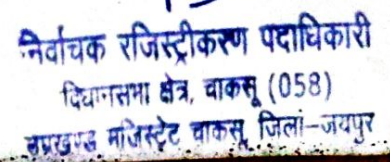 निर्वाचक रजिस्ट्रीकरण पदाधिकारी
विधानसभा क्षेत्र, चाकसू (058)
उपखण्ड मजिस्ट्रेट चाकसू, जिला-जयपुर